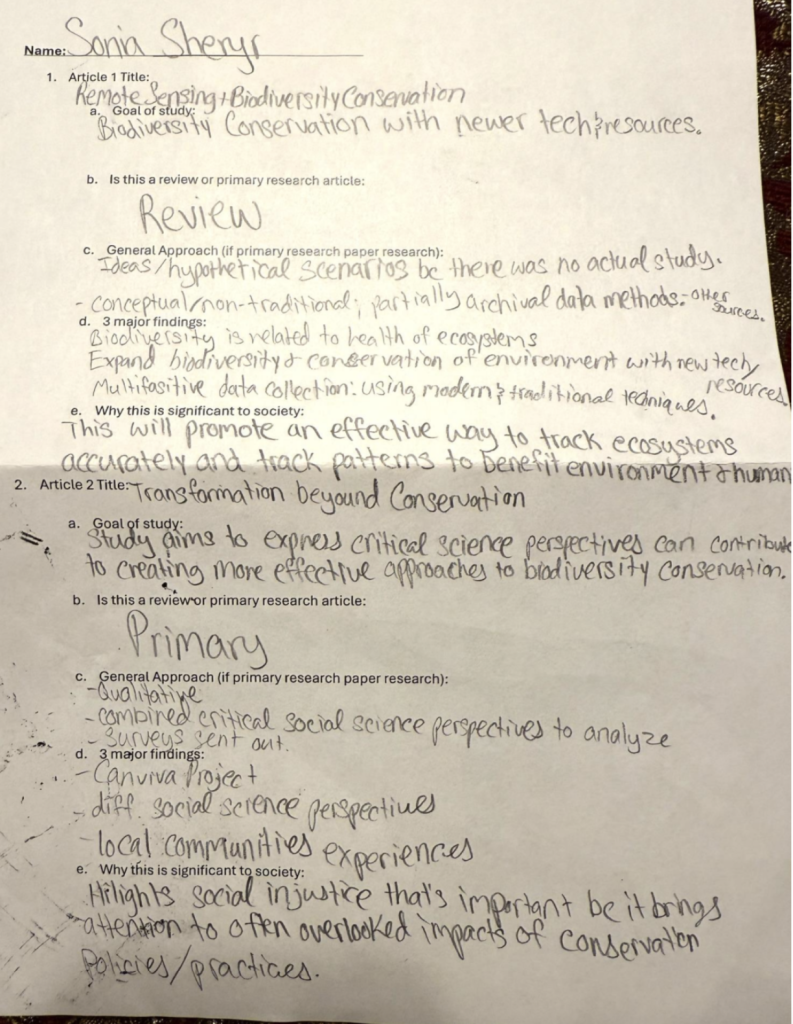 Name: Sonia Sheryr
1. Article 1 Title:
Remote Sensing + Biodiversity Conservation
a. Goal of study:
Biodiversity Conservation with newer tech & resources.
b. Is this a review or primary research article:
Review
c. General Approach (if primary research paper research):
Ideas/hypothetical scenarios bc there was no actual study.
- conceptual/non-traditional; partially archival data methods. - other sources.
d. 3 major findings:
Biodiversity is related to health of ecosystems
Expand biodiversity & conservation of environment with new tech/
resources.
Multifasitive data collection: using modern & traditional techniques.
e. Why this is significant to society:
This will promote an effective way to track ecosystems
accurately and track patterns to benefit environment & human
2. Article 2 Title: Transformation beyound Conservation
a. Goal of study:
Study aims to express critical science perspectives can contribute
to creating more effective approaches to biodiversity conservation.
b. Is this a review or primary research article:
Primary
c. General Approach (if primary research paper research):
- Qualitative
- combined critical social science perspectives to analyze
- surveys sent out.
d. 3 major findings:
- Canviva Project
- diff. social science perspectives
- local communities experiences
e. Why this is significant to society:
Hilights social injustice that's important bc it brings
attention to often overlooked impacts of conservation
Policies/practices.